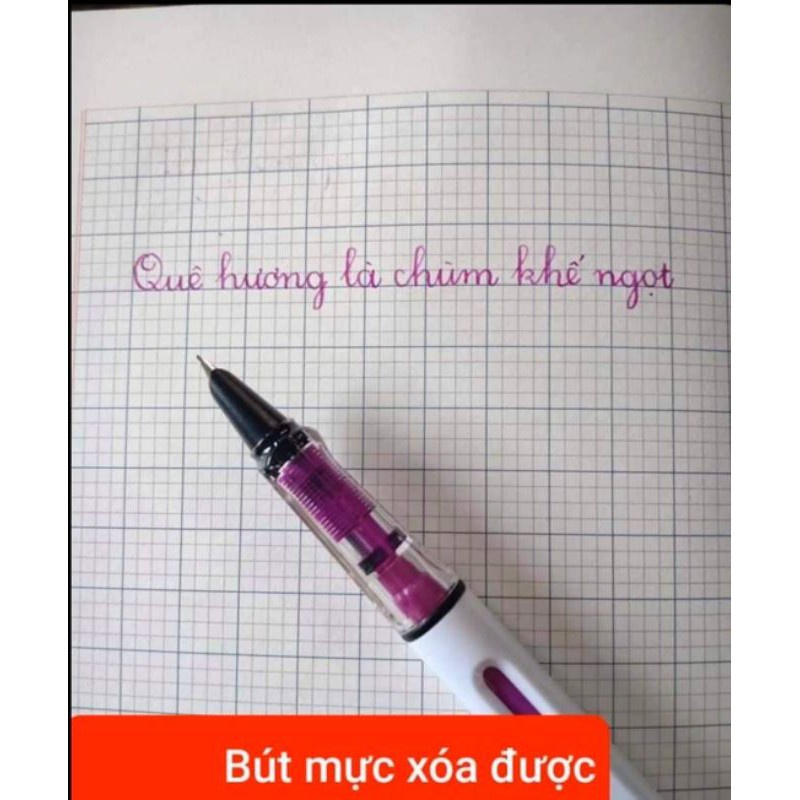 Quê hương là chùm khế ngọt
Bút mực xóa được